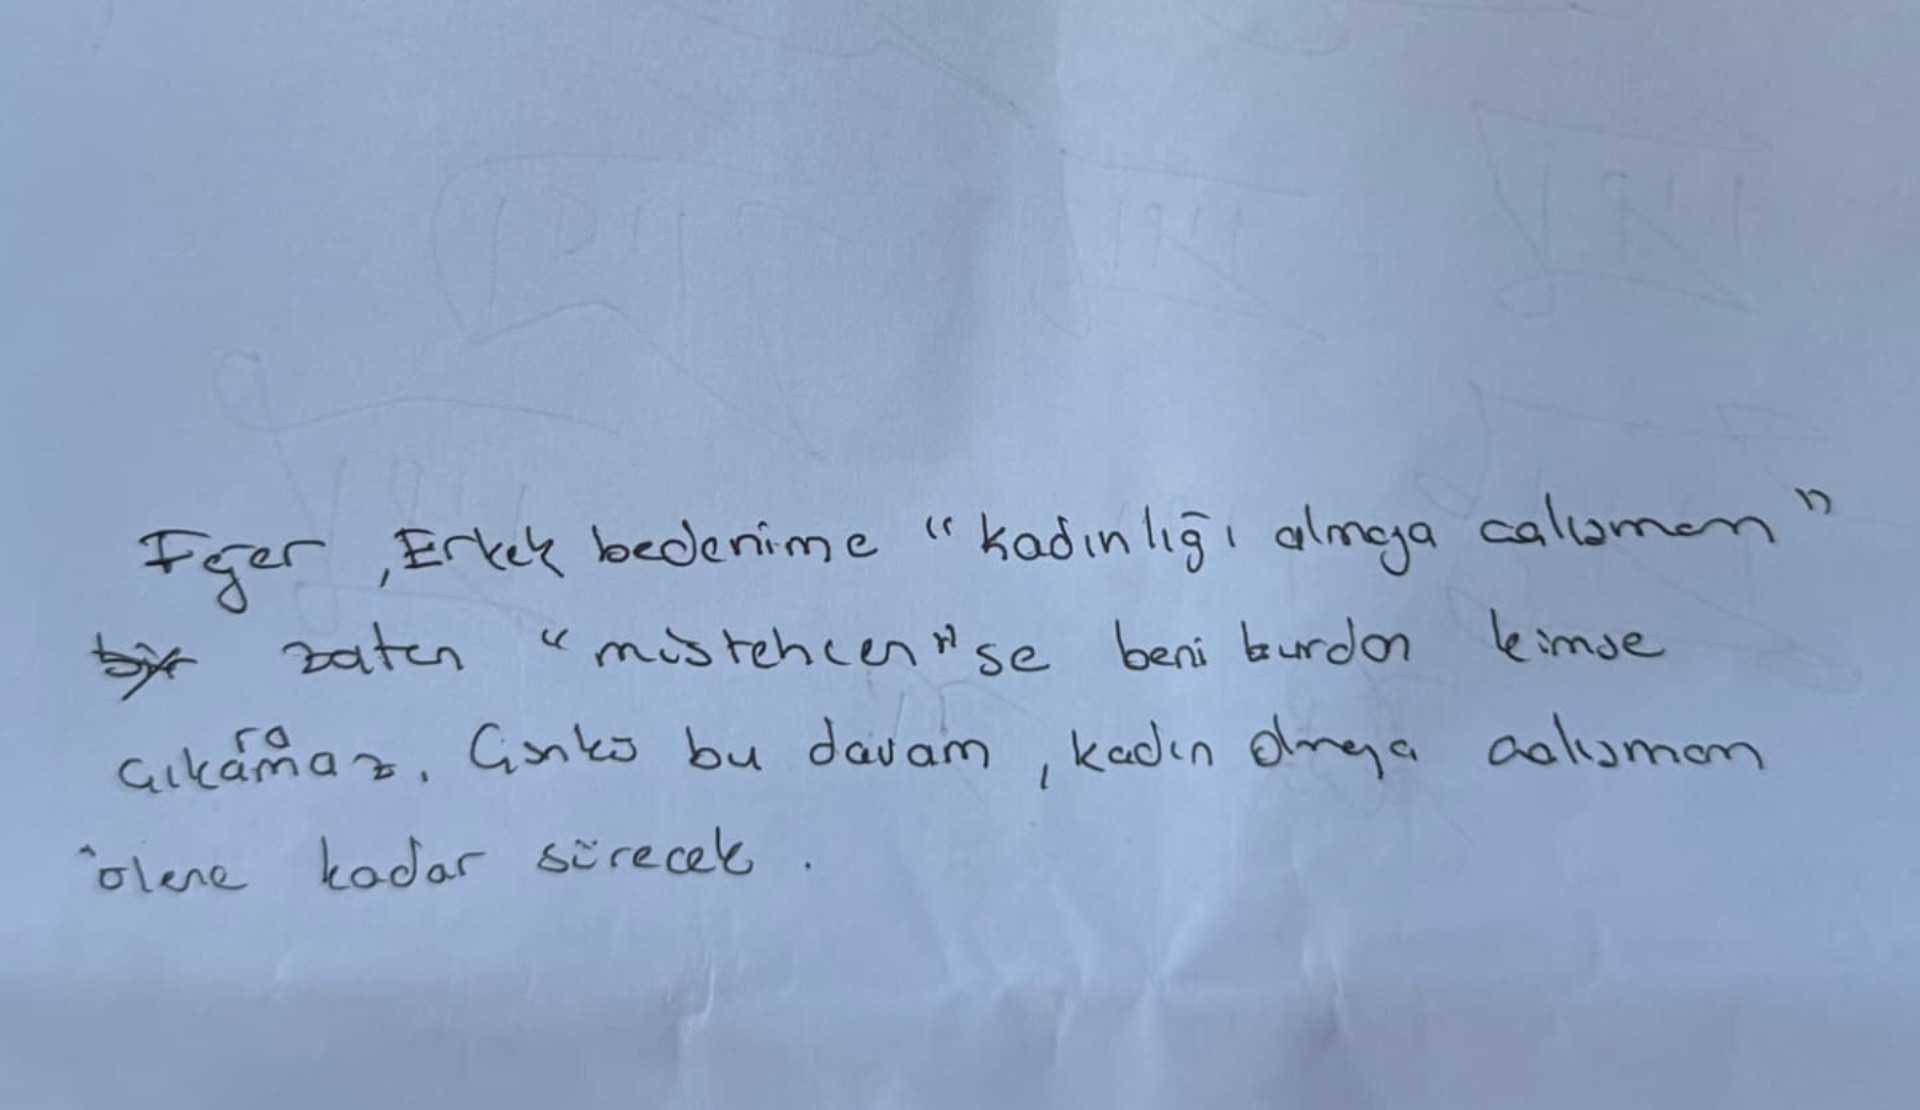 Eğer, Erkek bedenime "kadınlığı almaya calışmam"
zaten "müstehcen"se beni burdan kimse
çıkaramaz. Çünkü bu davam, kadın olmaya calışmam
ölene kadar sürecek.